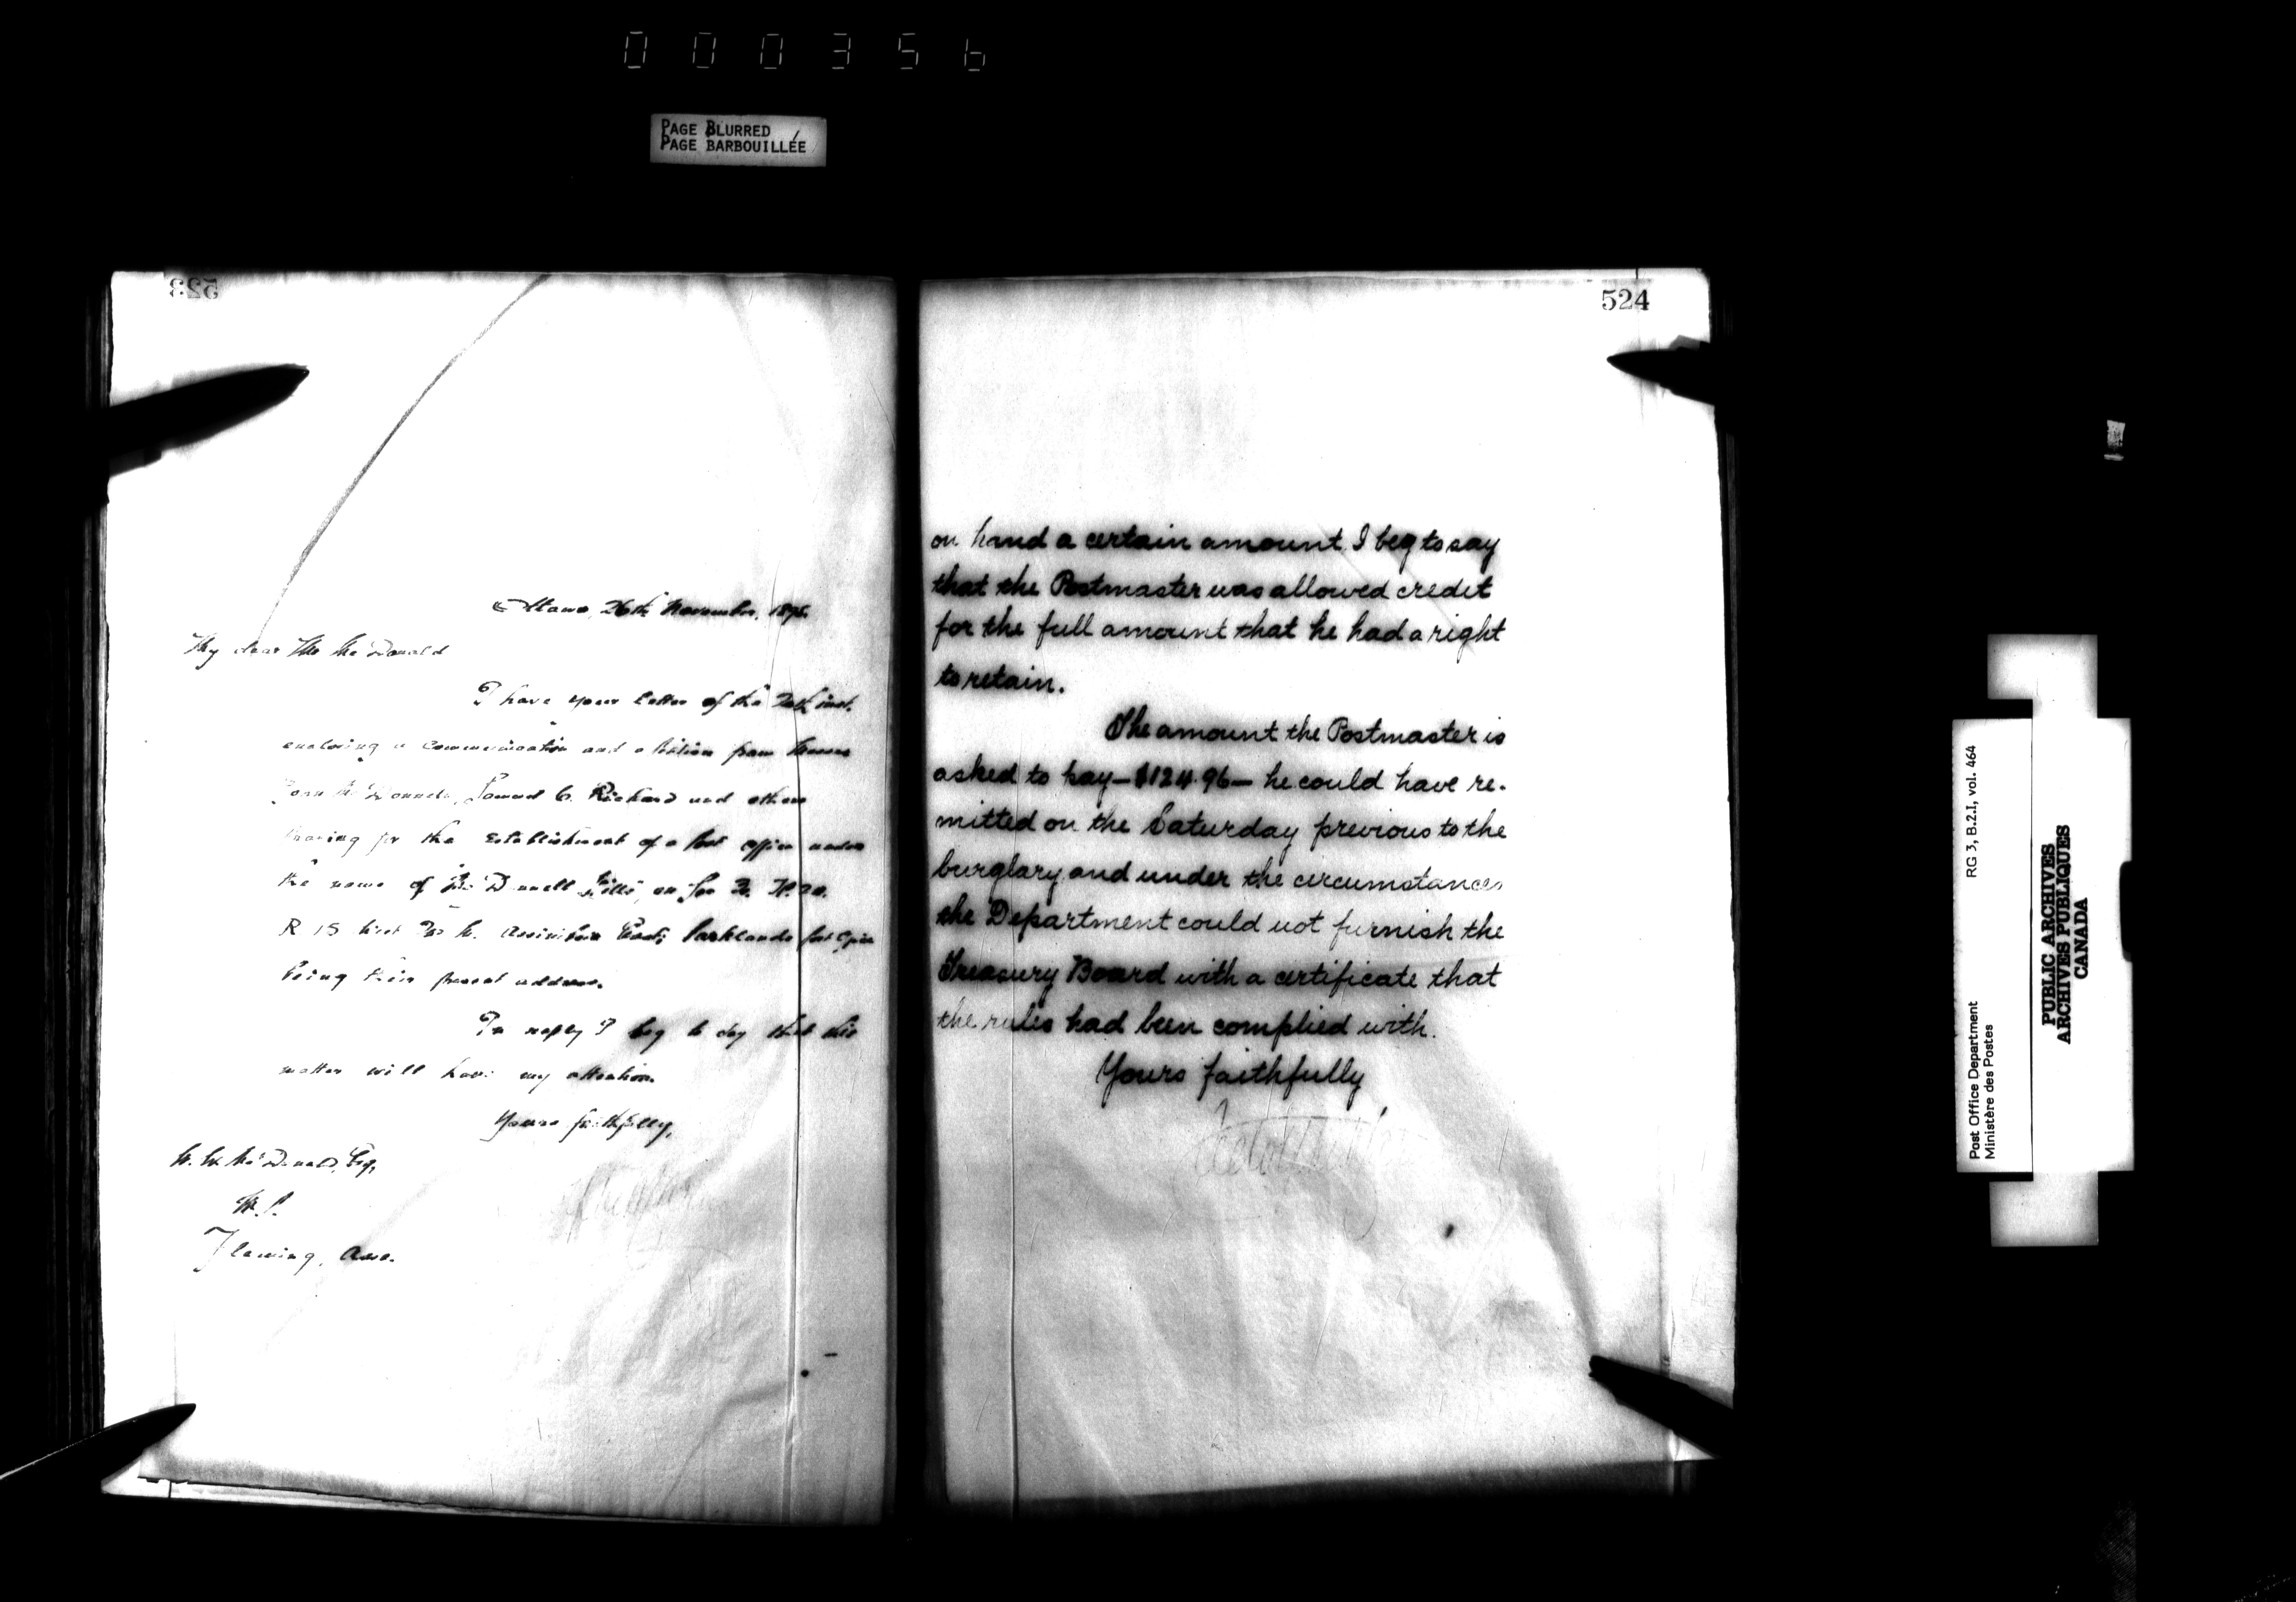 000356
PAGE BLURRED
PAGE BARBOUILLÉE
523
Ottawa, 26th November, 1895.
My dear Mr McDonald
I have your letter of the inst.
enclosing a communication and a petition from Messrs
Donnell, Samuel C. Rickard and others
for the establishment of a Post Office under
the name of McDonnell Hills, on Sec T.
R 15 West Assiniboia East; Parklands Post Office
being their present address.
In reply I beg to say that this
matter will have my attention.
Yours faithfully,
W. W. McDonald, Esq,
M.P.
Fleming, Assa.
524
on hand a certain amount I beg to say
that the Postmaster was allowed credit
for the full amount that he had a right
to retain.
The amount the Postmaster is
asked to pay—$124.96— he could have re-
mitted on the Saturday previous to the
burglary, and under the circumstances
the Department could not furnish the
Treasury Board with a certificate that
the rules had been complied with.
Yours faithfully
Post Office Department
Ministère des Postes
RG 3, B.2.I, vol. 464
PUBLIC ARCHIVES
ARCHIVES PUBLIQUES
CANADA